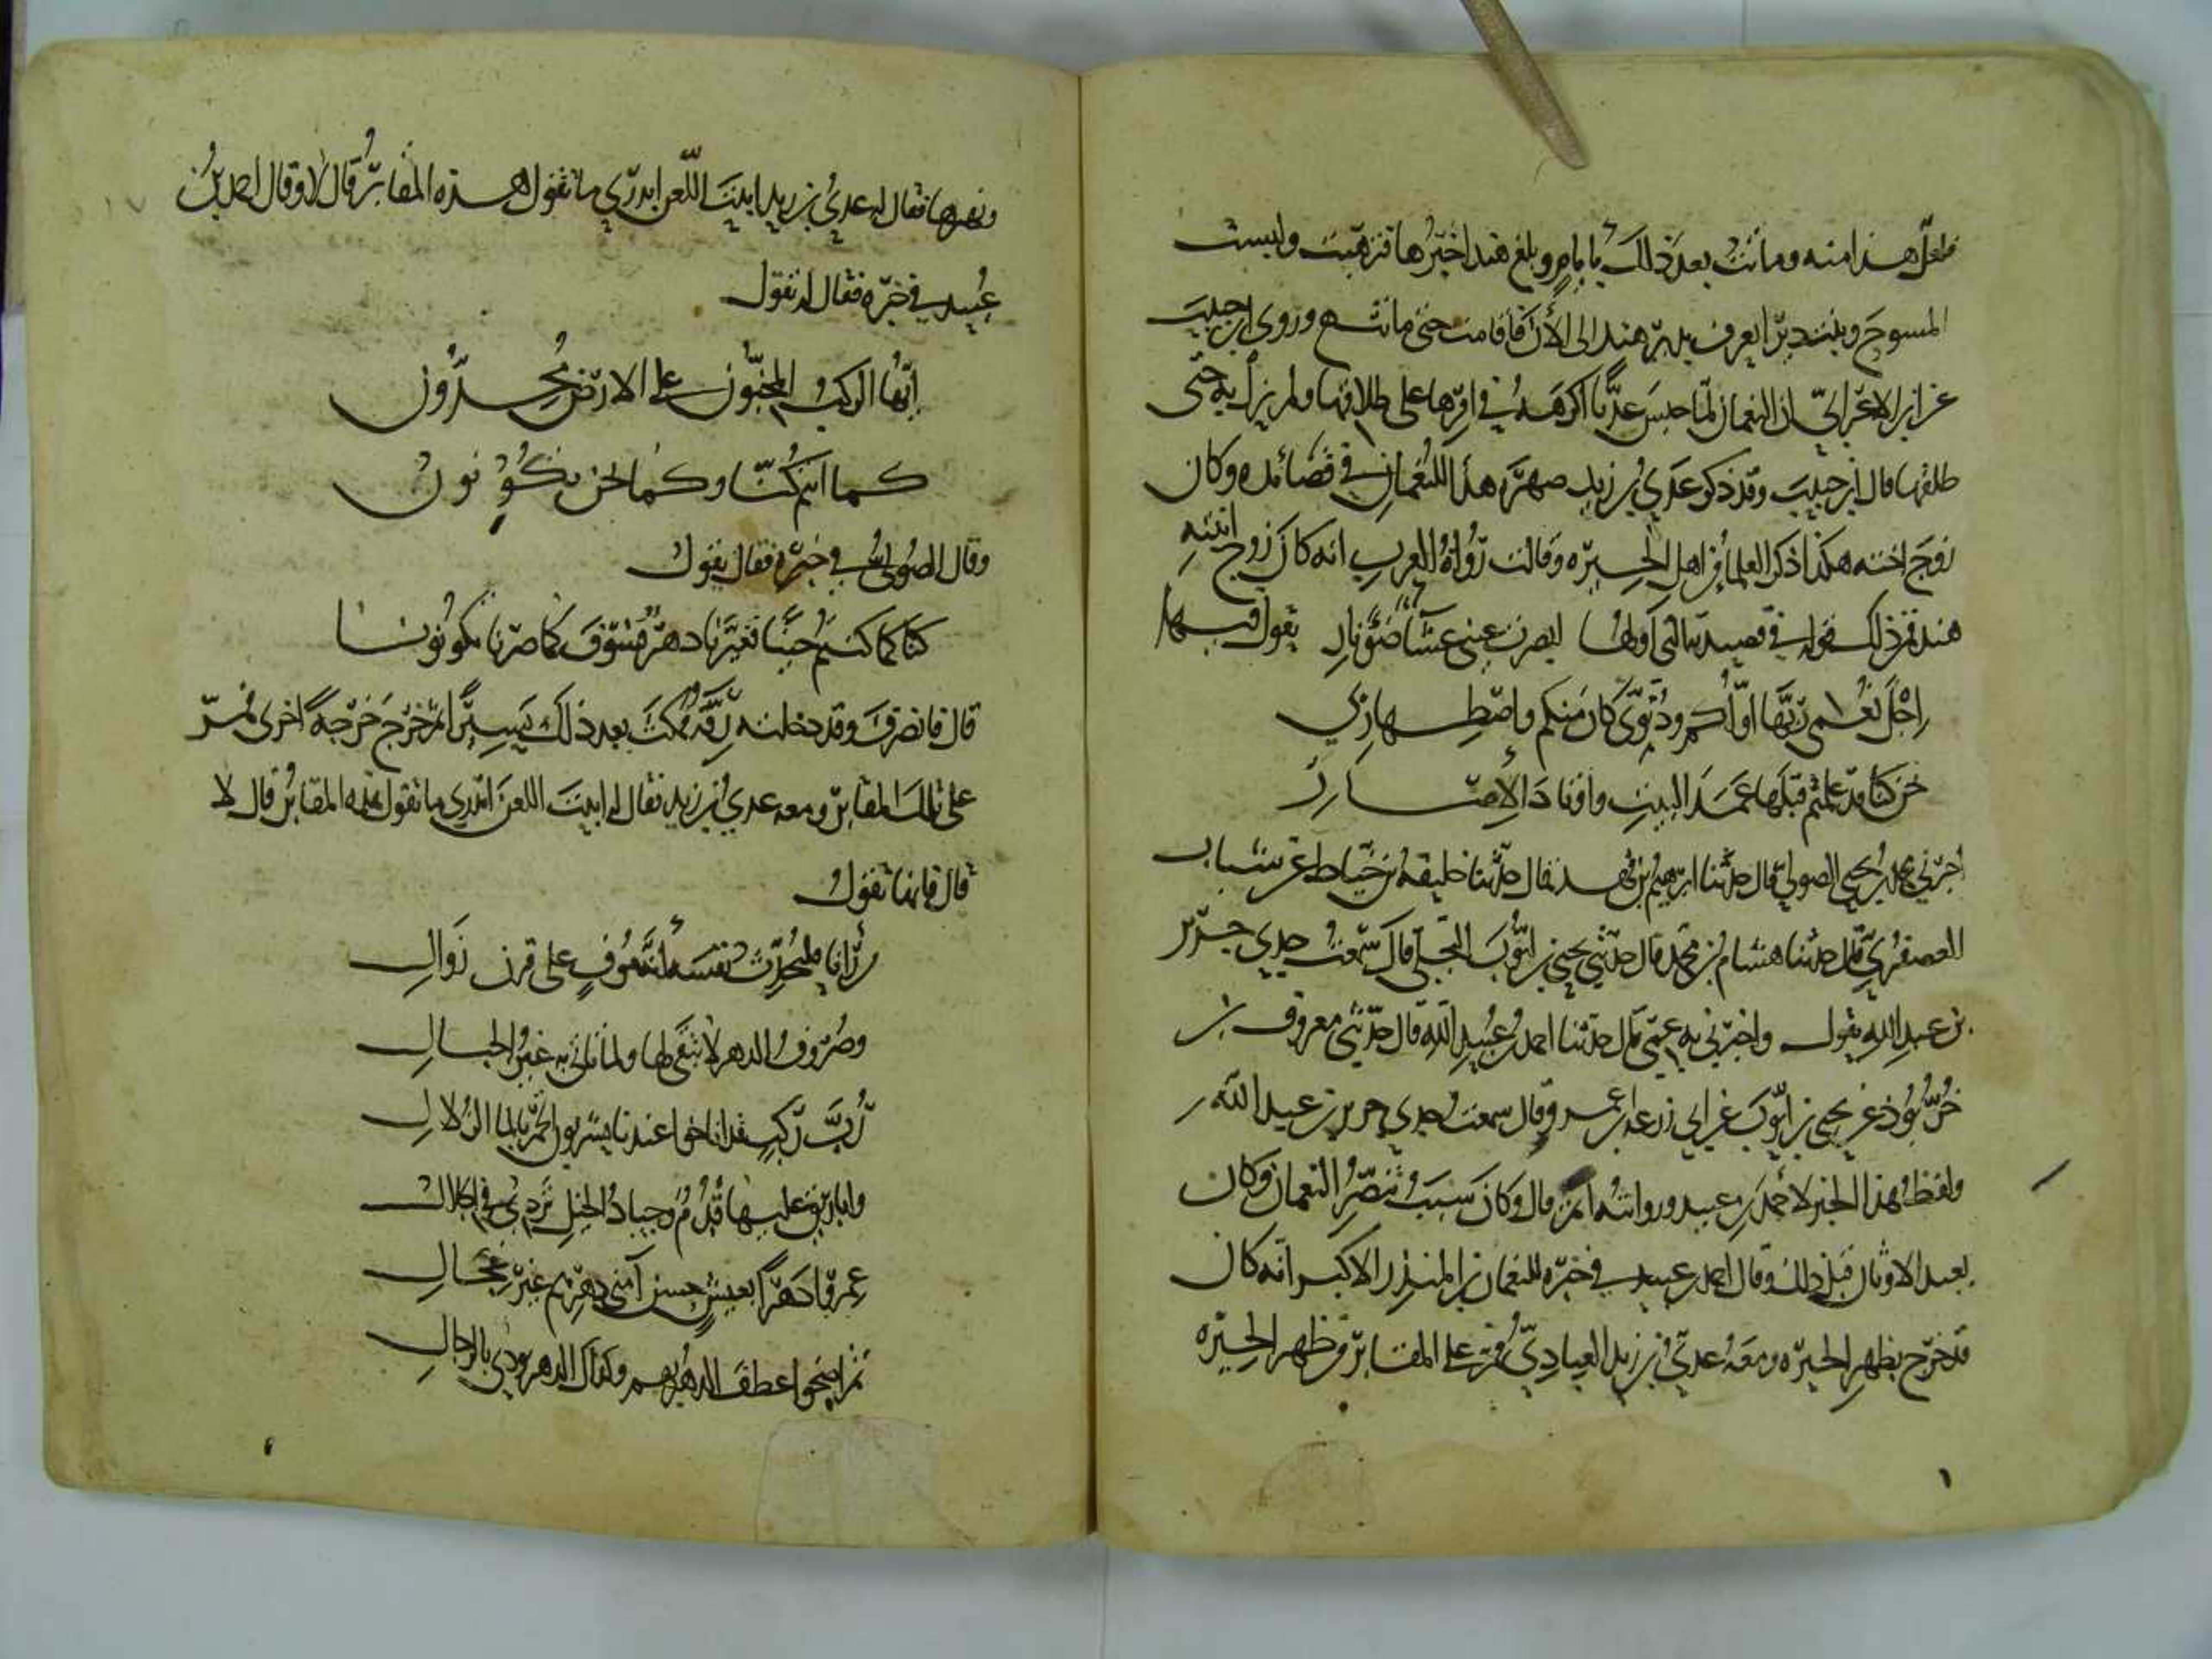 فعل هذا منه وماتت بعد ذلك بايام وبلغ هند اخبرها فترهبت ولبست
المسوح وبنت ديرا يعرف بدير هند الى الآن فاقامت حتى ماتت وروى ابن حبيب
عن ابن الاعرابي ان النعمان لما حبس عديا اكرهه في امرها على طلاقها ولم يزل به حتى
طلقها قال ابن حبيب وقد ذكر عدي بن زيد صهره هذا للنعمان في قصائده وكان
زوج اخته هكذا ذكر العلما من اهل الحيره وقالت رواة العرب انه كان زوج ابنته
هند فمن ذلك قوله في قصيدته التي اولها ابصرت عيني عشا ضو نار يقول فيها
اجل نعمى ربها اولكم ودنوي كان منكم واصطهاري
نحن كنا قد علمتم قبلها عمد البيت واوتاد الاصار
اخبرني محمد بن يحيى الصولي قال حدثنا ابرهيم بن فهد قال حدثنا خليفه بن خياط عن شباب
العصفري قال حدثنا هشام بن محمد قال حدثني يحيى بن ايوب البجلي قال سمعت جدي جرير
بن عبد الله يقول واخبرني به عمي قال حدثنا احمد بن عبيد الله قال حدثني معروف بن
خربوذ عن يحيى بن ايوب عن ابي زرعه بن عمرو قال سمعت جدي جرير بن عبد الله
ولفظ هذا الخبر لاحمد بن عبيد وروايته اتم قال وكان سبب تنصر النعمان وكان
يعبد الاوثان قبل ذلك وقال احمد بن عبيد في خبره للنعمان بن المنذر الاكبر انه كان
قد خرج بظهر الحيره ومعه عدي بن زيد العبادي فمر على المقابر من ظهر الحيره
ونهرها فقال له عدي بن زيد ابيت اللعن اتدري ما تقول هذه المقابر قال لا وقال احمد بن
عبيد في خبره فقال له تقول
ايها الركب المخبون على الارض مجدون
كما انتم كنا وكما نحن تكونون
وقال الصولي في خبره فقال يقول
كنا كما كنتم حينا فغيرنا دهر فسوف كما صرنا تكونونا
قال فانصرف وقد دخلته رقه فمكث بعد ذلك يسيرا ثم خرج خرجة اخرى فمر
على تلك المقابر ومعه عدي بن زيد فقال له ابيت اللعن اتدري ما تقول هذه المقابر قال لا
قال فانها تقول
من رآنا فليحدث نفسه انه موف على قرن زوال
وصروف الدهر لا يبقى لها ولما تاتي به صم الجبال
رب ركب قد اناخوا عندنا يشربون الخمر بالما الزلال
والاباريق عليها فدم وجياد الخيل تردي في الجلال
عمروا دهرا بعيش حسن آمني دهرهم غير عجال
ثم اضحوا عطف الدهر بهم وكذاك الدهر يودي بالرجال